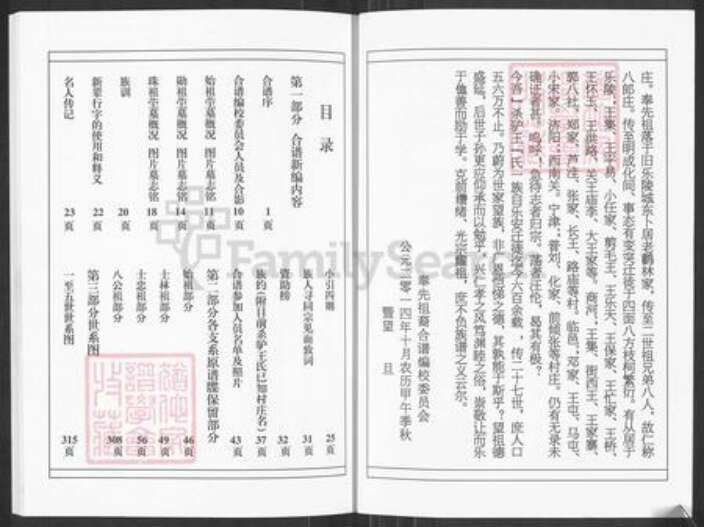 庄。奉先祖落于旧乐陵城东卜居老鹳林家，传至二世祖兄弟八人，故仁称
八郎庄。传至明成化间，事态有变突迁徙于四面八方枝柯繁衍。有从居于
乐陵：王集、王宇易、小任家、剪毛王、王乐天、王保家、王忙家、王桥、
王怀玉、王洪路、关王庙李、大王家等。商河：王集、街西王、王家寨、
郭八社、郑家、芦洼、张家、长王、路庙等村。临邑：邓家、王屯、马屯、
小宋家。济阳：西南关。宁津：普刘、化家、前倾张等村庄。仍有无录未
确证者甚，呜呼！急待志者归宗，荡者汪伦，曷其有极？
今吾「杀驴王」氏一族自乐安迁徙迄今六百余载，传二十七世，庶人口
五六万不止。乃蔚为世家望族，非人恩祖梯之德，其孰能于斯乎？望祖德
盛延，后世子孙更应仰承而以勉乎，兴仁孝之风笃渊睦之俗，崇敬让而乐
于傴善而励于学。克前缵绪，光宗耀祖，庶不负族谱之义云尔。
奉先祖裔合谱编校委员会
公元二零一四年十月农历甲午季秋
暨望 旦
目录
第一部分 合谱新编内容
合谱序 1页
合谱编校委员会人员及合影 10页
始祖茔墓概况 图片墓志铭 11页
勋祖茔墓概况 图片墓志铭 14页
珠祖茔墓概况 图片墓志铭 18页
族训 20页
新辈行字的使用和释义 22页
名人传记 23页
小引四则 25页
族人寻同宗见面致词 31页
资助榜 32页
族约(附目前杀驴王氏已知村庄名) 37页
合谱参加人员名单及照片 43页
第二部分各支系原谱牒保留部分
始祖部分 46页
士林祖部分 49页
士忠祖部分 56页
八公祖部分 308页
第三部分世系图
一至五世世系图 315页
FamilySearch